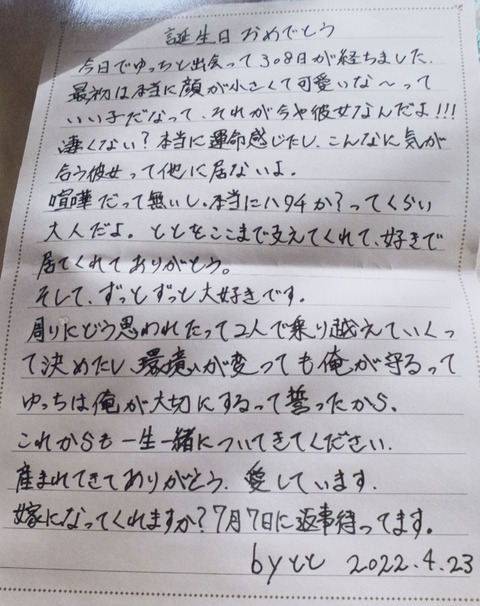 誕生日おめでとう
今日でゆっちと出会って308日が経ちました.
最初は本当に顔が小さくて可愛いな〜って
いい子だなって、それが今や彼女なんだよ!!!
凄くない?本当に運命感じたし、こんなに気が
合う彼女って他に居ないよ。
喧嘩だって無いし、本当にハタチか?ってくらい
大人だよ。ととをここまで支えてくれて、好きで
居てくれてありがとう。
そして、ずっとずっと大好きです。
周りにどう思われたって2人で乗り越えていくっ
て決めたし、環境が変っても俺が守るって
ゆっちは俺が大切にするって誓ったから、
これからも一生一緒についてきてください.
産まれてきてありがとう.愛しています.
嫁になってくれますか?7月7日に返事待ってます。
byとと 2022.4.23